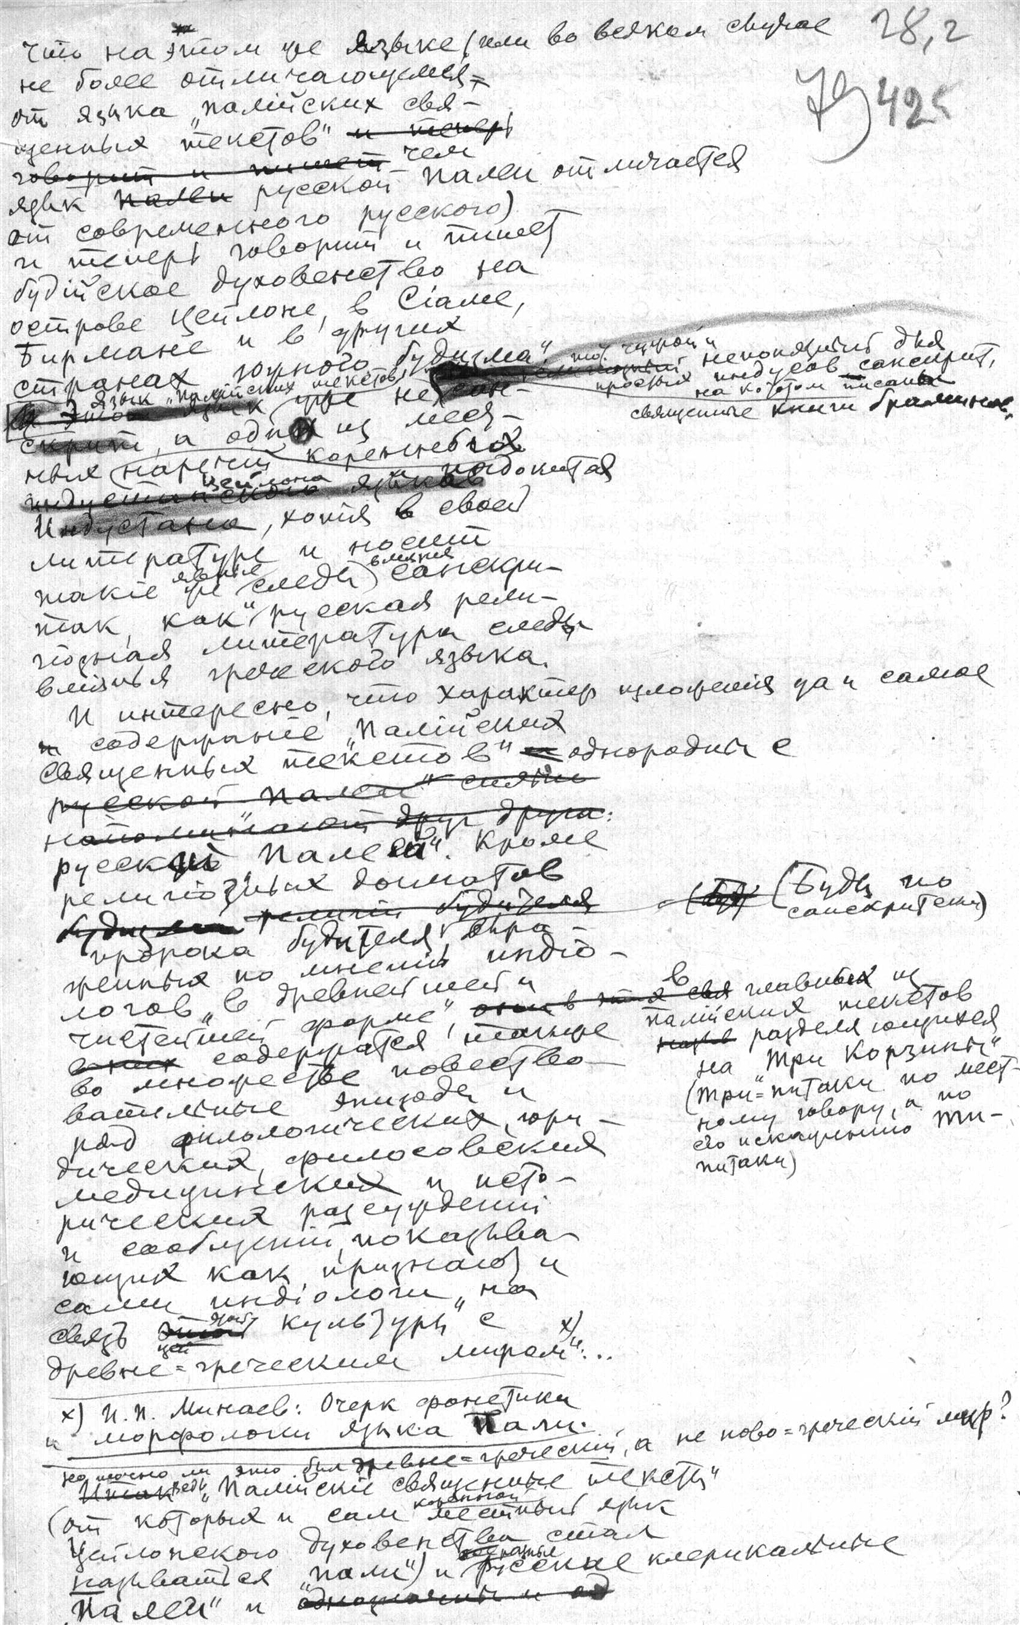 28,2
79 425
что на этом же языке (или во всяком случае
не более отличающемся
от языка "палiйских свя-
щенных текстов" и теперь
говорит и пишет чем
язык Палеи русской Палеи отличается
от современного русского)
и теперь говорит и пишет
будiйское духовенство на
острове Цейлоне, в Сiаме,
Бирмане и в других
странах "южного будизма",
непонятный для
простых индусов санскрит,
на котором писаны
священные книги браминов,
И это язык "палiйских текстов"
язык уже не сан
скрит, а один из мест-
ных наречий коренных
индустанского языков Цейлона и
Индустана, хотя в своей
литературе и носит
такiе же явные следы влiянiя санскри-
так, как и русская рели-
гiозная литература следы
влiянья греческого языка.
И интересно, что характер изложенiя да и самое
и содержанiе "Палiйских
священных текстов" однородны с
русской Палеи" сильно
напоминают друг друга:
русской "Палеей". Кроме
религiозных догматов
будизма религiи будителя
(Буд) (Буды по
санскритски)
пророка будителя, выра-
женных по мненiю индiо-
логов "в древнейшей и
чистейшей форме",
в главных из
палiйских текстов
разделяющихся
на "Три Корзины"
(три=питаки по мест-
ному говору, а по
его искаженiю ти-
питаки)
в них содержатся также
во множестве повество-
вательные эпизоды и
ряд филологических, юри-
дических, философских
медицинских и исто-
рических разсужденiй
и сообщенiй, показыва-
ющих как признают и
сами индiологи, "на
связь этой культуры с
древне=греческим миром" x)...
x) И. П. Минаев: Очерк фонетики
и морфологии языка Пали.
но точно ли это был древне=греческий, а не ново=греческiй мир?
Итак ведь "Палiйскiе священные тексты"
(от которых и сам коренной местный язык
Цейлонского духовенства стал
называться "пали") и русские клерикальные
"Палеи" и однозначны и од